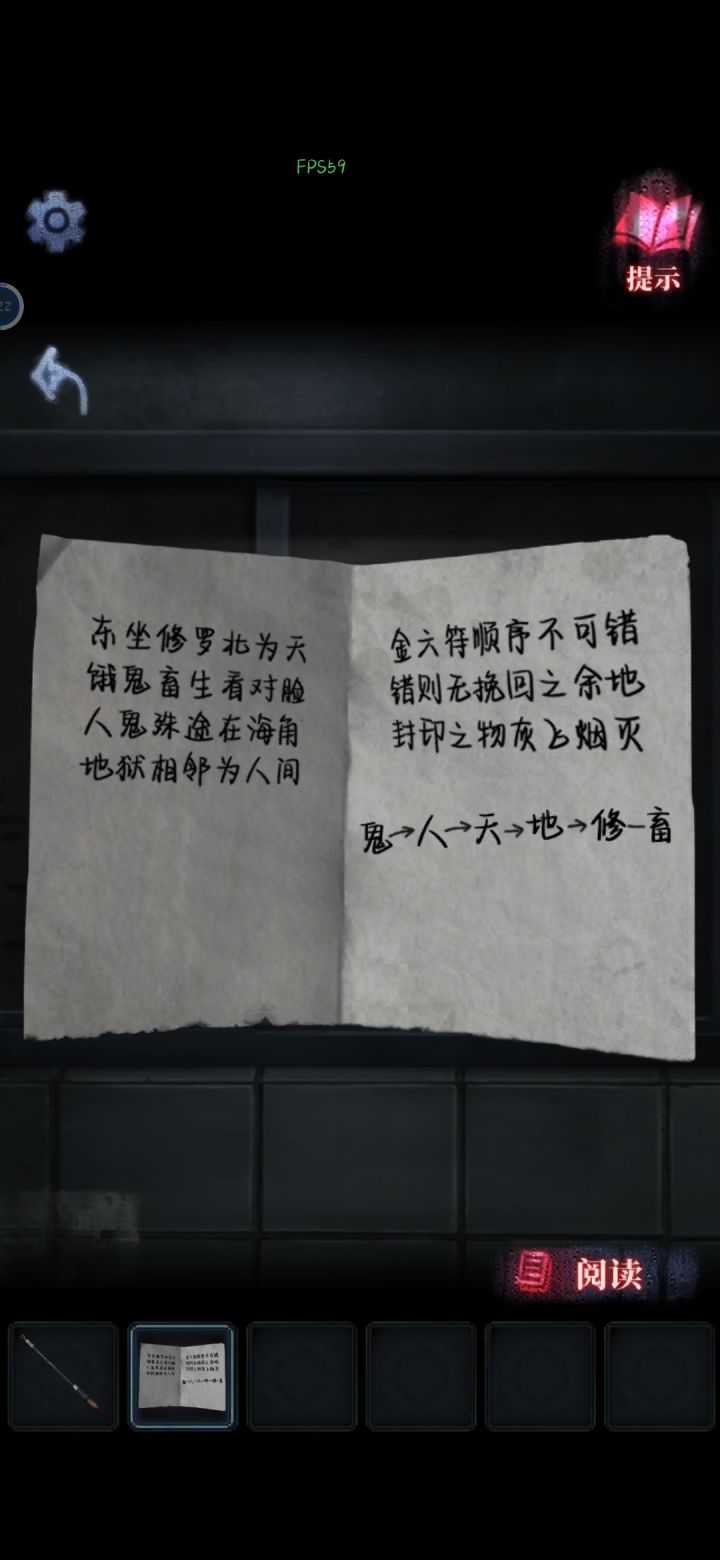 FPS59
提示
zz
东坐修罗北为天
饿鬼畜生看对脸
人鬼殊途在海角
地狱相邻为人间
金六符顺序不可错
错则无挽回之余地
封印之物灰飞烟灭
鬼→人→天→地→修—畜
阅读